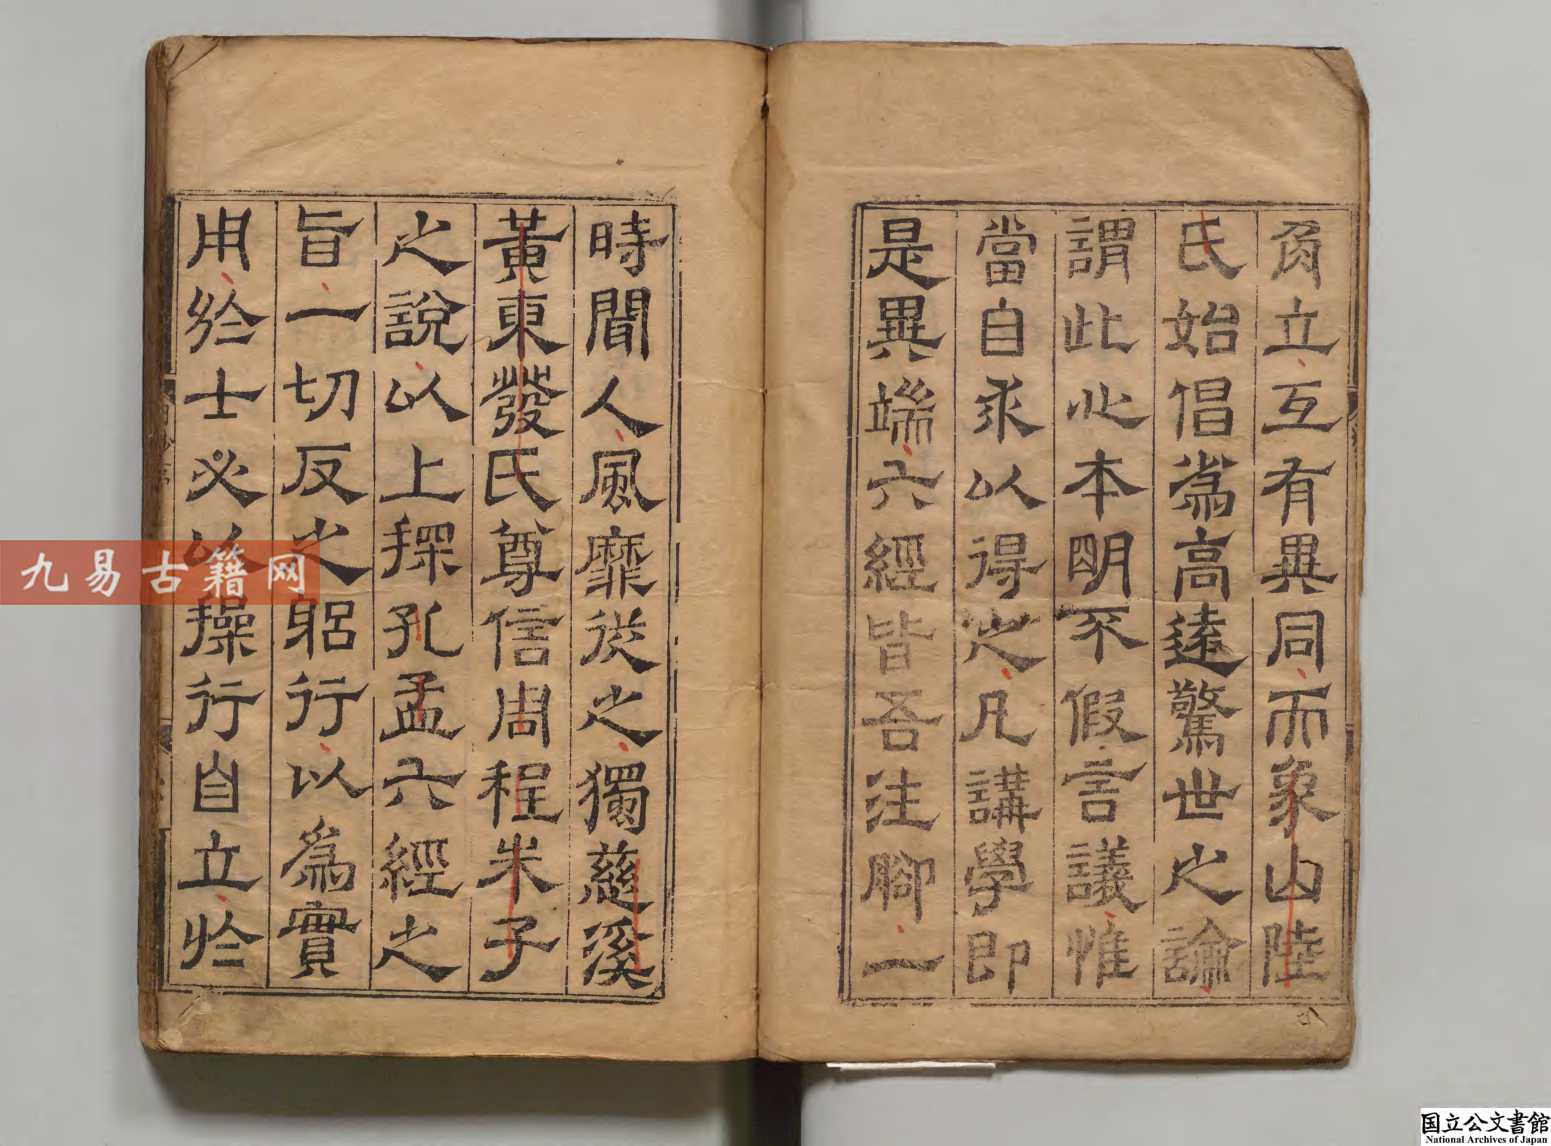 角立互有異同而象山陸
氏始倡為高遠驚世之論
謂此心本明不假言議惟
當自求以得之凡講學即
是異端六經皆吾注腳一
時聞人風靡從之獨慈溪
黃東發氏尊信周程朱子
之說以上探孔孟六經之
旨一切反之躳行以為實
用於士必以操行自立於
九易古籍网
国立公文書館
National Archives of Japan